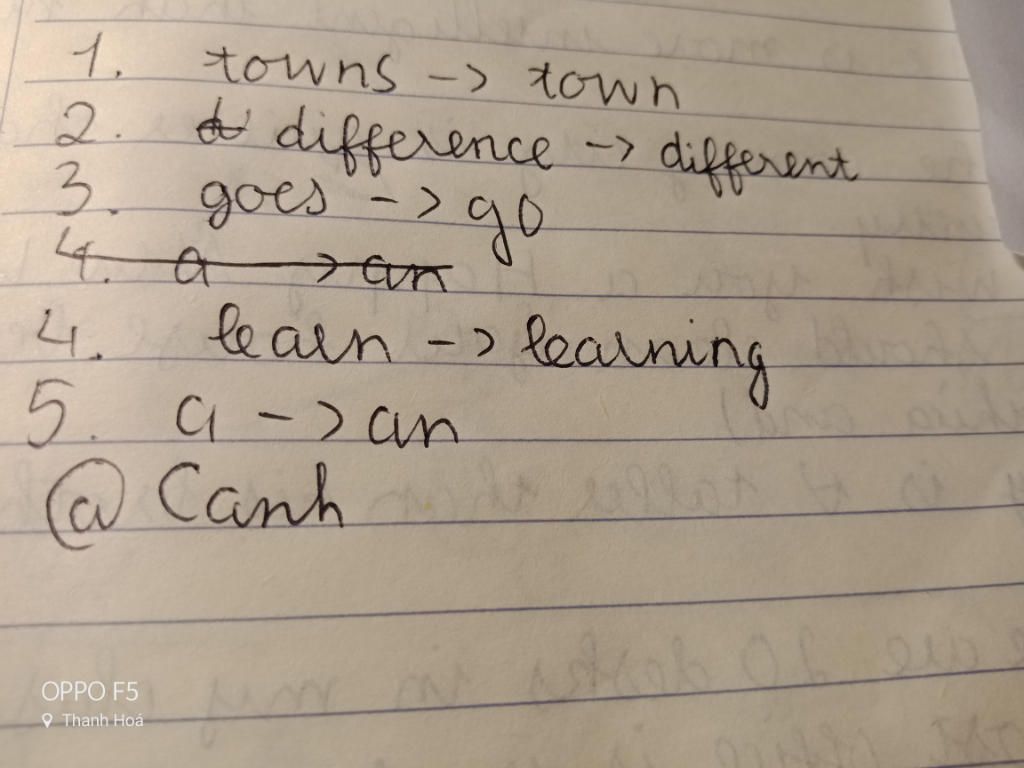 1. towns -> town
2. difference -> different
3. goes -> go
4. a -> an
4. learn -> learning
5. a -> an
@ Canh
OPPO F5
Thanh Hoá